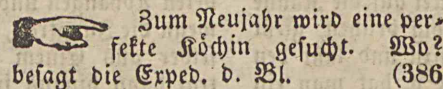 Zum Neujahr wird eine per⸗
fekte Köchin gesucht. Wo?
besagt die Exped. d. Bl. (386